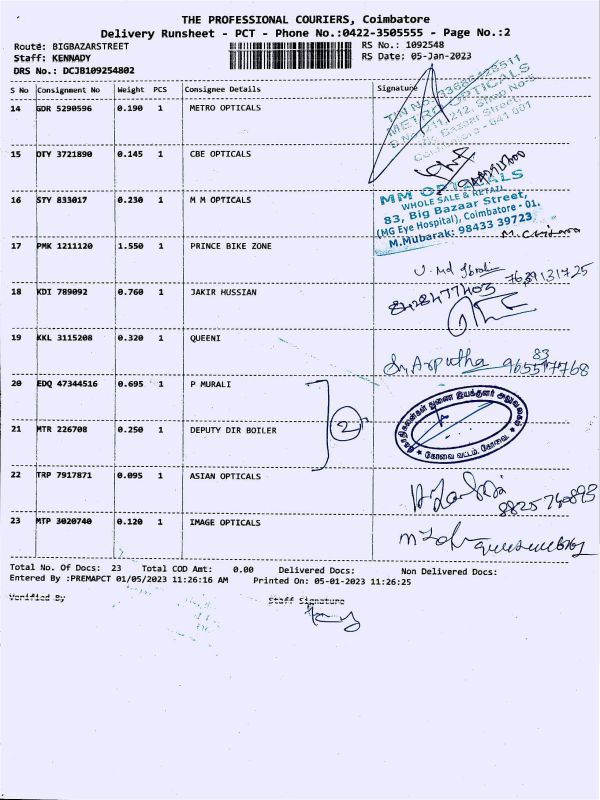 THE PROFESSIONAL COURIERS, Coimbatore
Delivery Runsheet - PCT - Phone No.:0422-3505555 - Page No.:2
Route: BIGBAZARSTREET RS No.: 1092548
Staff: KENNADY RS Date: 05-Jan-2023
DRS No.: DCJB109254802
S No Consignment No Weight PCS Consignee Details Signature
14 GDR 5290596 0.190 1 METRO OPTICALS
METRO OPTICALS
Big Bazaar Street,
Coimbatore - 641 001
15 DTY 3721890 0.145 1 CBE OPTICALS
16 STY 833017 0.230 1 M M OPTICALS
MM OPTICALS
WHOLE SALE & RETAIL
83, Big Bazaar Street,
(MG Eye Hospital), Coimbatore - 01.
M.Mubarak: 98433 39723
17 PMK 1211120 1.550 1 PRINCE BIKE ZONE
18 KDI 789092 0.760 1 JAKIR HUSSIAN
8428477403
19 KKL 3115208 0.320 1 QUEENI
Arputha
20 EDQ 47344516 0.695 1 P MURALI
2
21 MTR 226708 0.250 1 DEPUTY DIR BOILER
துணை இயக்குனர் அலுவலகம்
கோவை வட்டம், கோவை.
22 TRP 7917871 0.095 1 ASIAN OPTICALS
8825740893
23 MTP 3020740 0.120 1 IMAGE OPTICALS
Total No. Of Docs: 23 Total COD Amt: 0.00 Delivered Docs: Non Delivered Docs:
Entered By :PREMAPCT 01/05/2023 11:26:16 AM Printed On: 05-01-2023 11:26:25
Verified By Staff Signature